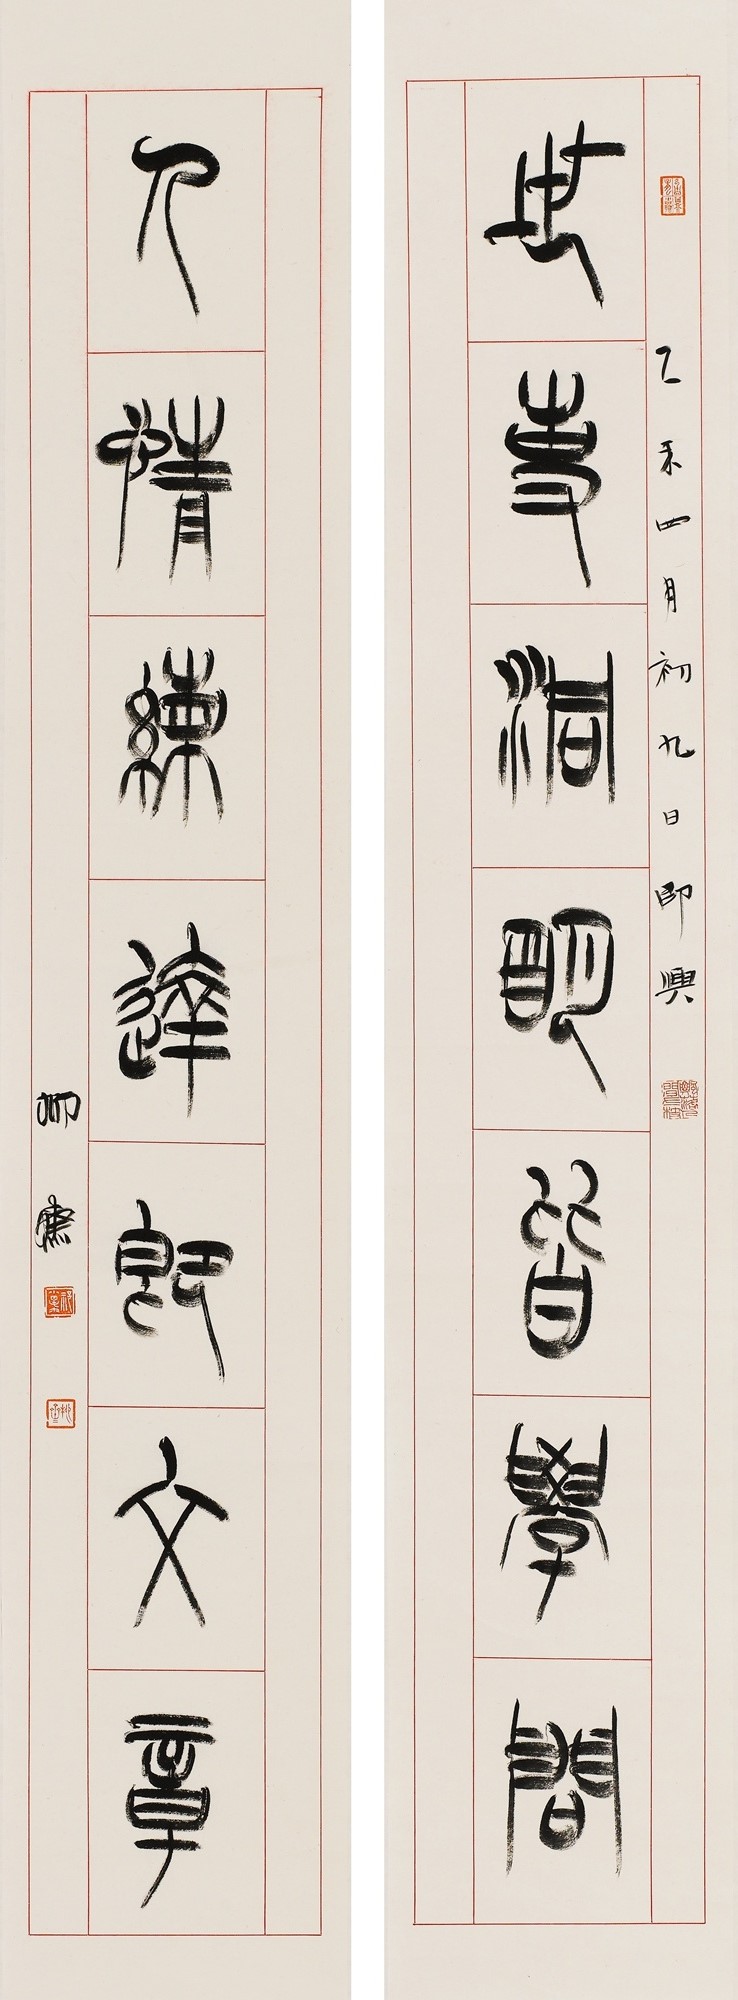 乙未四月初九日即興
世事洞明皆學問
人情練達即文章